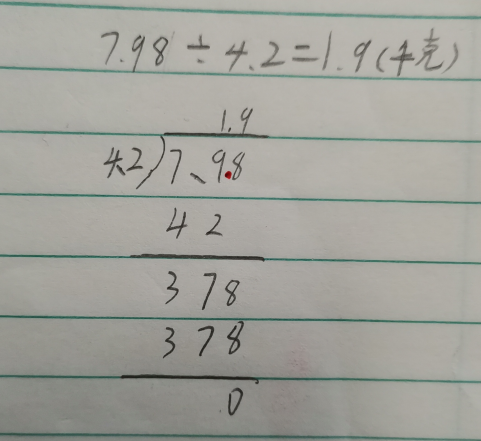 7.98÷4.2=1.9(千克)
1.9
4.2)7.9.8
42
378
378
0